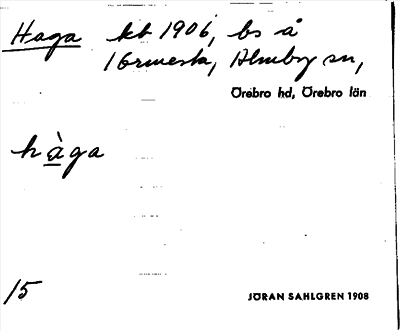 Haga kt 1906, bs å
Ormesta, Almby sn,
Örebro hd, Örebro län
hàga
15
JÖRAN SAHLGREN 1908